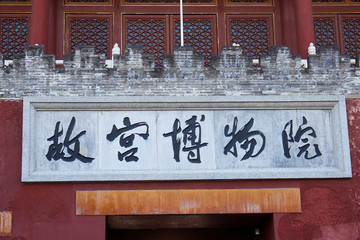 故宫博物院